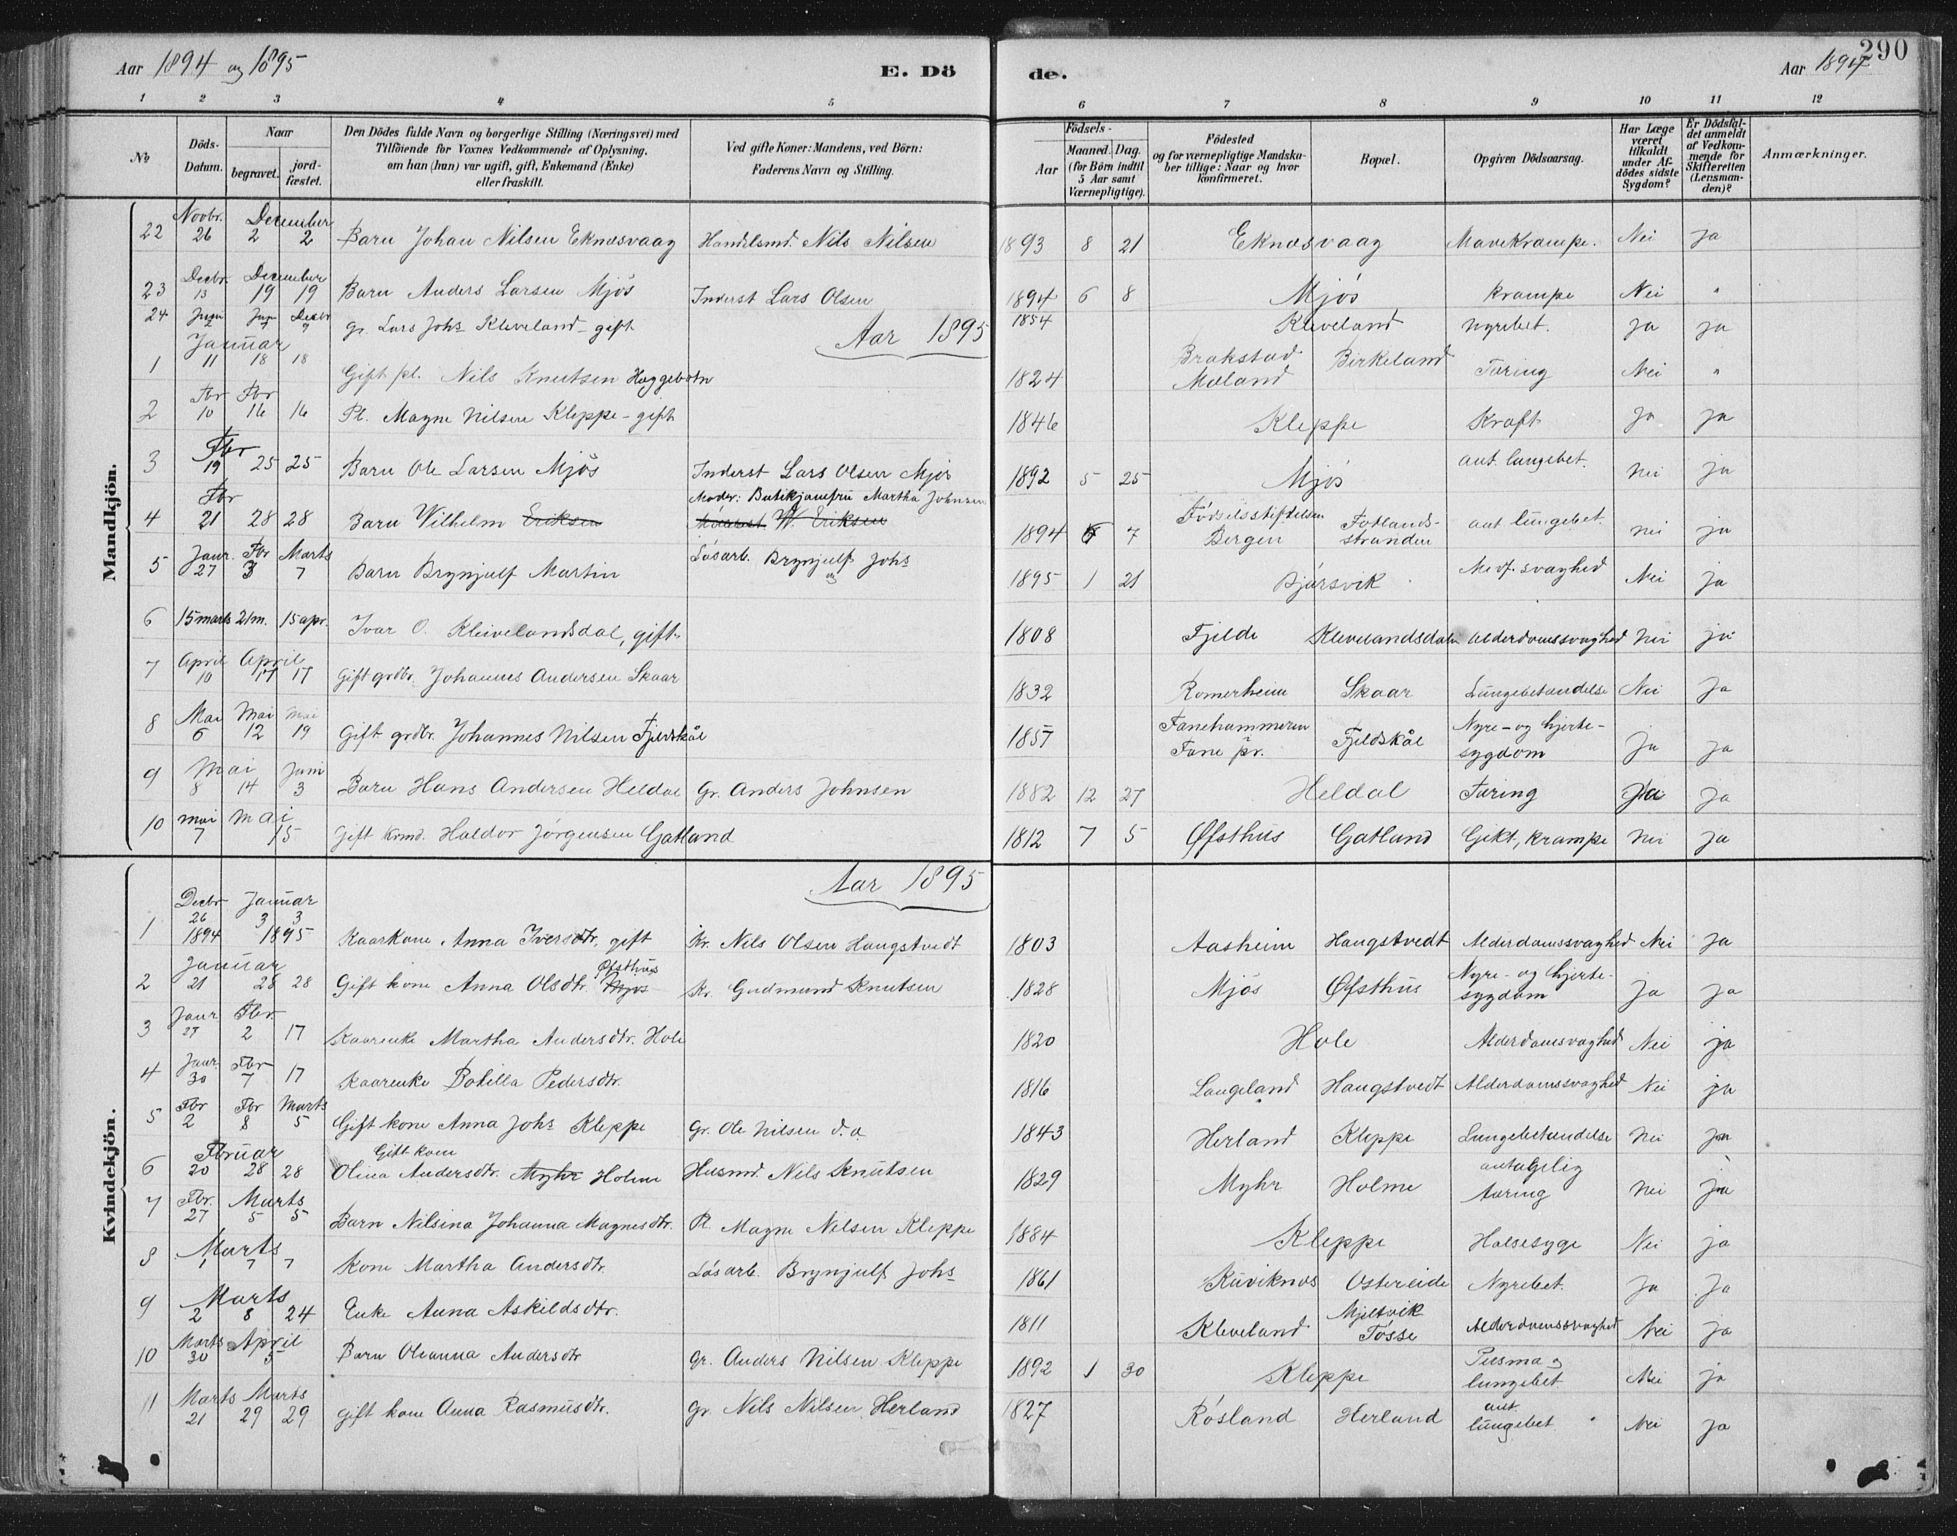 290
Aar 1894 og 1895 E. Dö de. Aar 1894
1 2 3 4 5 6 7 8 9 10 11 12
No Döds-Datum. Naar begravet. jord-fæstet. Den Dödes fulde Navn og borgerlige Stilling (Næringsvei) med Tilföiende for Voxnes Vedkommende af Oplysning, om han (hun) var ugift, gift, Enkemand (Enke) eller fraskilt. Ved gifte Koner: Mandens, ved Börn: Faderens Navn og Stilling. Födsels- Aar Maaned. Dag. (for Börn indtil 5 Aar samt Værnepligtige). Födested og for værnepligtige Mandskaber tillige: Naar og hvor konfirmeret. Bopæl. Opgiven Dödsaarsag. Har Læge været tilkaldt under Afdödes sidste Sygdom? Er Dödsfaldet anmeldt af Vedkommende for Skifteretten (Lensmanden)? Anmærkninger.
Mandkjön.
22 Novbr. 26 December 2 2 Barn Johan Nilsen Eknæsvaag Handelsmd. Nils Nilsen 1893 8 21 Eknæsvaag Mavekrampe. Nei Ja
23 Decbr. 13 December 19 19 Barn Anders Larsen Mjös Inderst Lars Olsen 1894 6 8 Mjös Krampe Nei "
24 gr. Lars Johs Kleveland - gift 1854 Kleveland Nyrebet. Ja Ja
Aar 1895
1 Januar 11 18 18 Gift pl. Nils Knutsen Haggebotn 1824 Brakstad Mæland Birkeland Tæring Nei "
2 Fbr 10 Fbr 16 16 Pl. Magne Nilsen Kleppe - gift 1846 Kleppe Kræft Ja Ja
3 Fbr 19 25 25 Barn Ole Larsen Mjös Inderst Lars Olsen Mjös 1892 5 25 Mjös ant. lungebet. Nei Ja
4 Fbr 21 28 28 Barn Wilhelm Eriksen Moder: Butikjomfru Martha Johnsen W. Eriksen 1894 6 7 Födselsstiftelsen Bergen Fotlandsstranden ant lungebet. Nei Ja
5 Janr. 27 Fbr 3 Marts 7 Barn Brynjulf Martin Lösarb. Brynjulf Johs 1895 1 21 Bjørsvik Medf. svaghed Nei Ja
6 15 marts 21 m. 15 apr. Ivar O. Kleivelandsdal, gift 1808 Fjelde Klevelandsdalen Alderdomssvaghed Nei Ja
7 April 10 April 17 17 Gift grdbr. Johannes Andersen Skaar 1832 Romerheim Skaar Lungebetændelse Nei Ja
8 Mai 6 Mai 12 Mai 19 Gift grdbr. Johannes Nilsen Fjeldskål 1857 Fanehammeren Fane pr. Fjeldskål Nyre- og hjerte-sygdom Ja Ja
9 Mai 8 14 Juni 3 Barn Hans Andersen Heldal Gr. Anders Johnsen 1882 12 27 Heldal Tæring Ja Ja
10 mai 7 mai 15 Gift kmd. Haldor Jörgensen Gatland 1812 7 5 Øfsthus Gatland Gikt, krampe Nei Ja
Kvindekjön.
Aar 1895
1 Decbr 26 1894 Januar 3 3 1895 Kaarkone Anna Iversdtr. gift Kr. Nils Olsen Haugstvedt 1803 Aasheim Haugstvedt Alderdomssvaghed Nei Ja
2 Januar 21 28 28 Gift kone Anna Olsdtr. Mjös Øfsthus Kr. Gudmund Knutsen 1828 Mjös Øfsthus Nyre- og hjerte-sygdom Ja Ja
3 Janr 27 Fbr. 2 17 Kaarenke Martha Andersdtr. Hole 1820 Hole Alderdomssvaghed Nei Ja
4 Janr 30 Fbr 7 17 Kaarenke Botilla Pedersdtr. 1816 Langeland Haugstvedt Alderdomssvaghed Nei Ja
5 Fbr 2 Fbr 8 Marts 5 Gift kone Anna Johs Kleppe Gr. Ole Nilsen d.a. 1843 Herland Kleppe Lungebetændelse Nei Ja
6 Februar 20 28 28 Gift kone Olina Andersdtr. Myhr Holme Husmd. Nils Knutsen 1829 Myhr Holme antagelig tæring Nei Ja
7 Fbr. 27 Marts 5 5 Barn Nilsina Johanna Magnesdtr. Pl. Magne Nilsen Kleppe 1884 Kleppe Halsesyge Nei Ja
8 Marts 1 7 7 Kone Martha Andersdtr. Lösarb. Brynjulf Johs 1861 Kuviknæs Ostereide Nyrebet. Ja Ja
9 Marts 2 8 24 Enke Anna Askildsdtr. 1811 Kleveland Mjeltvik Tösse Alderdomssvaghed Nei Ja
10 Marts 30 April 5 Barn Olianna Andersdtr Gr. Anders Nilsen Kleppe 1892 1 30 Kleppe lungebet. Nei Ja
11 Marts 21 Marts 29 29 Gift kone Anna Rasmusdtr. Gr. Nils Nilsen Herland 1827 Rösland Herland ant lungebet Nei Ja